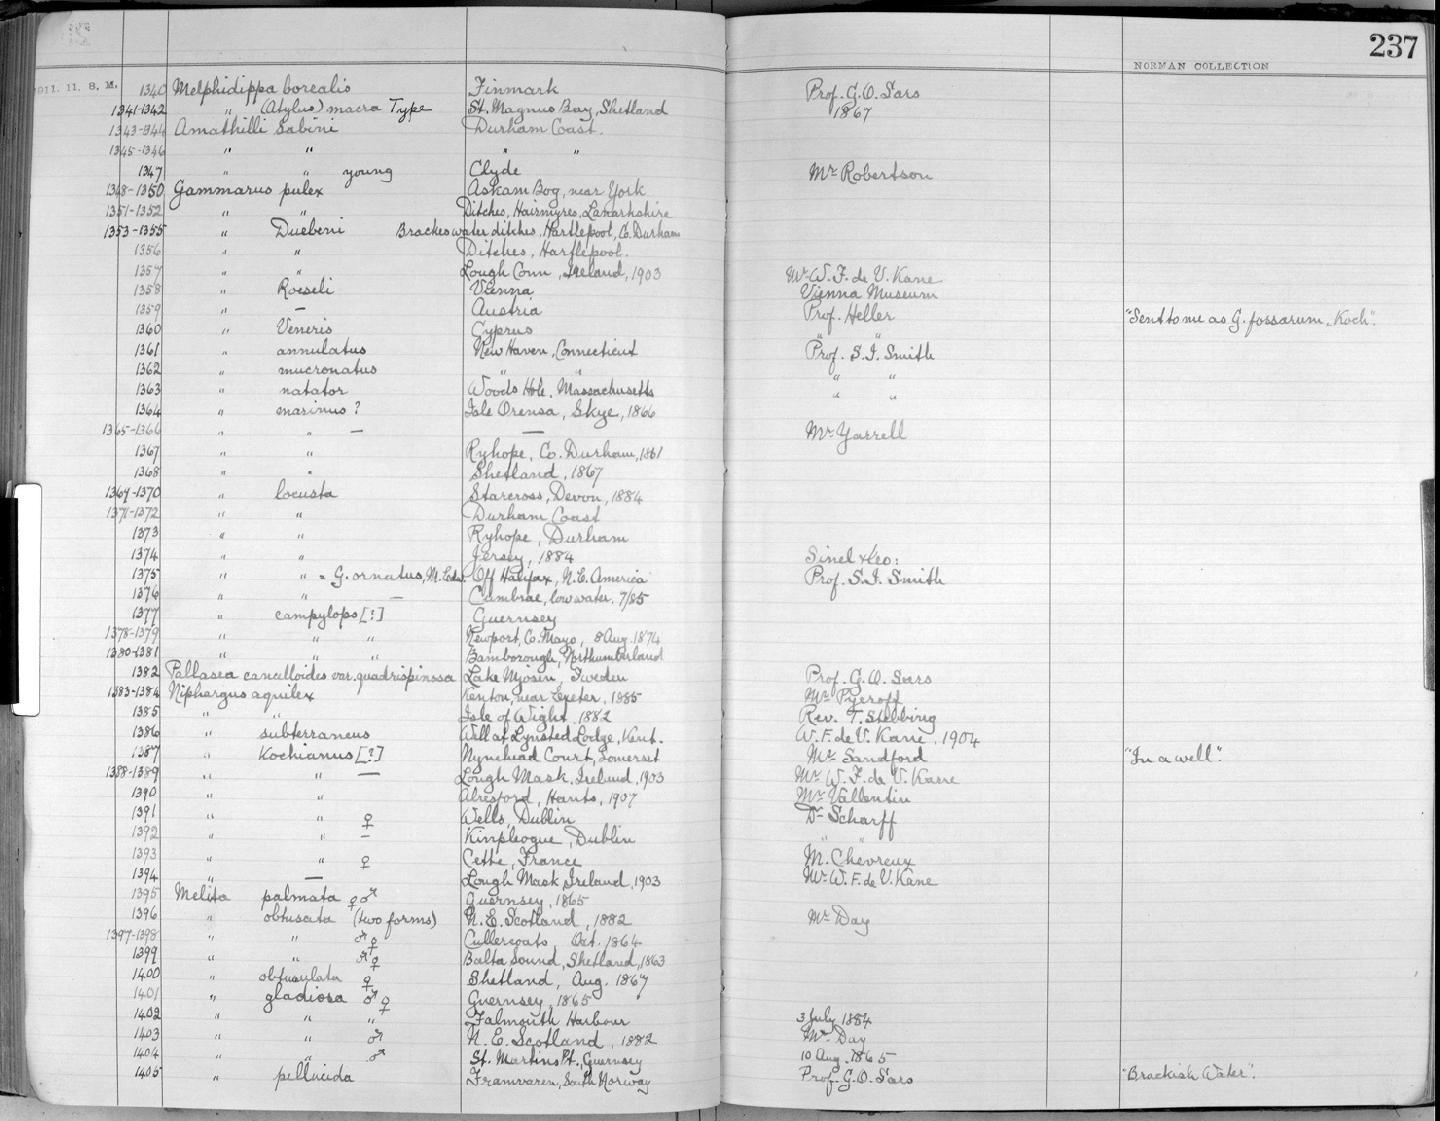 237
NORMAN COLLECTION
1911. 11. 8. M. 1340 Melphidippa borealis Finmark Prof. G.O. Sars
1341-1342 " (Atylus) macra Type St. Magnus Bay, Shetland 1867
1343-1344 Amathilli Sabini Durham Coast.
1345-1346 " " " "
1347 " " young Clyde Mr Robertson
1348-1350 Gammarus pulex Askam Bog, near York
1351-1352 " " Ditches, Hairmyres, Lanarkshire
1353-1355 " Duebeni Brackes water ditches, Hartlepool, Co. Durham
1356 " " Ditches, Hartlepool.
1357 " " Lough Conn, Ireland, 1903 Mr W. F. de V. Kane
1358 " Roeseli Vienna Vienna Museum
1359 " — Austria Prof. Heller "Sent to me as G. fossarum, Koch".
1360 " Veneris Cyprus " "
1361 " annulatus New Haven, Connecticut Prof. S.I. Smith
1362 " mucronatus " " " "
1363 " natator Woods Hole, Massachusetts " "
1364 " marinus ? Isle Orensa, Skye, 1866
1365-1366 " " — — Mr Yarrell
1367 " " Ryhope, Co. Durham, 1861
1368 " " Shetland, 1867
1369-1370 " locusta Starcross, Devon, 1884
1371-1372 " " Durham Coast
1373 " " Ryhope, Durham
1374 " " Jersey, 1884 Sinel & Co:
1375 " " = G. ornatus, M. Edw. Off Halifax, N.E. America Prof. S.I. Smith
1376 " " — Cumbrae, low water. 7/85
1377 " campylops [?] Guernsey
1378-1379 " " " Newport, Co. Mayo, 8 Aug. 1874
1380-1381 " " " Bamborough, Northumberland
1382 Pallasea cancelloides var. quadrispinosa Lake Mjösin, Sweden Prof. G.O. Sars
1383-1384 Niphargus aquilex Kenton, near Exeter, 1885 Mr
1385 " " Isle of Wight, 1882 Rev. T. Stebbing
1386 " subterraneus Well at Lynsted Lodge, Kent. W.F. de V. Kane, 1904
1387 " Kochianus [?] Nynehead Court, Somerset Mr Sandford "In a well".
1388-1389 " " — Lough Mask, Ireland, 1903 Mr W. F. de V. Kane
1390 " " Alresford, Hants, 1907 Mr Vallentin
1391 " " ♀ Wells, Dublin Dr Scharff
1392 " " — Dublin " "
1393 " " ♀ Cette, France M. Chevreux
1394 " — Lough Mask, Ireland, 1903 Mr W. F. de V. Kane
1395 Melita palmata ♀♂ Guernsey, 1865
1396 " obtusata (two forms) N.E. Scotland, 1882 Mr Day
1397-1398 " " ♂♀ Cullercoats, Oct. 1864
1399 " " ♂♀ Balta Sound, Shetland, 1863
1400 " obtusulata ♀ Shetland, Aug. 1867
1401 " gladiosa ♂♀ Guernsey, 1865
1402 " " " Falmouth Harbour 3 July 1884
1403 " " ♂ N.E. Scotland, 1882 Mr Day
1404 " " ♂ St. Martins Pt., Guernsey 10 Aug. 1865
1405 " pellucida Framvaren, South Norway Prof. G.O. Sars "Brackish Water".